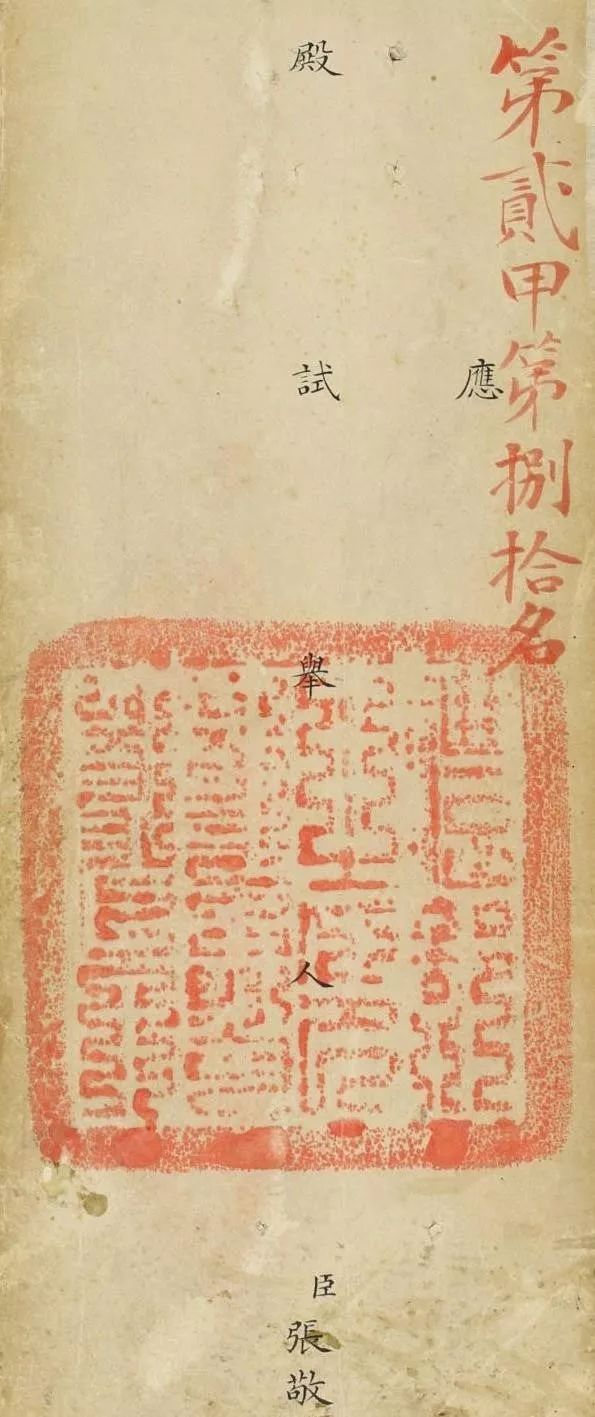 第貳甲第捌拾名
應
殿試舉人臣張敬